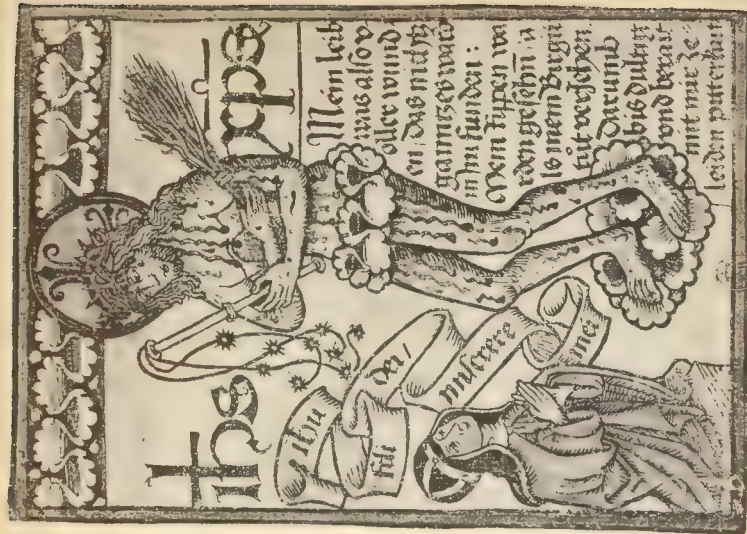 ihs
xps
ihu
fili
dei /
miserere
mei
Mein leib
was also v
oller wund
en: das nichtz
in im funden :
Mein rypen wa
rden gesehn a
ls mein
tüt verjehen
Darumb
bis dultig
vnd berait
mit mir ze
leiden pitterkait